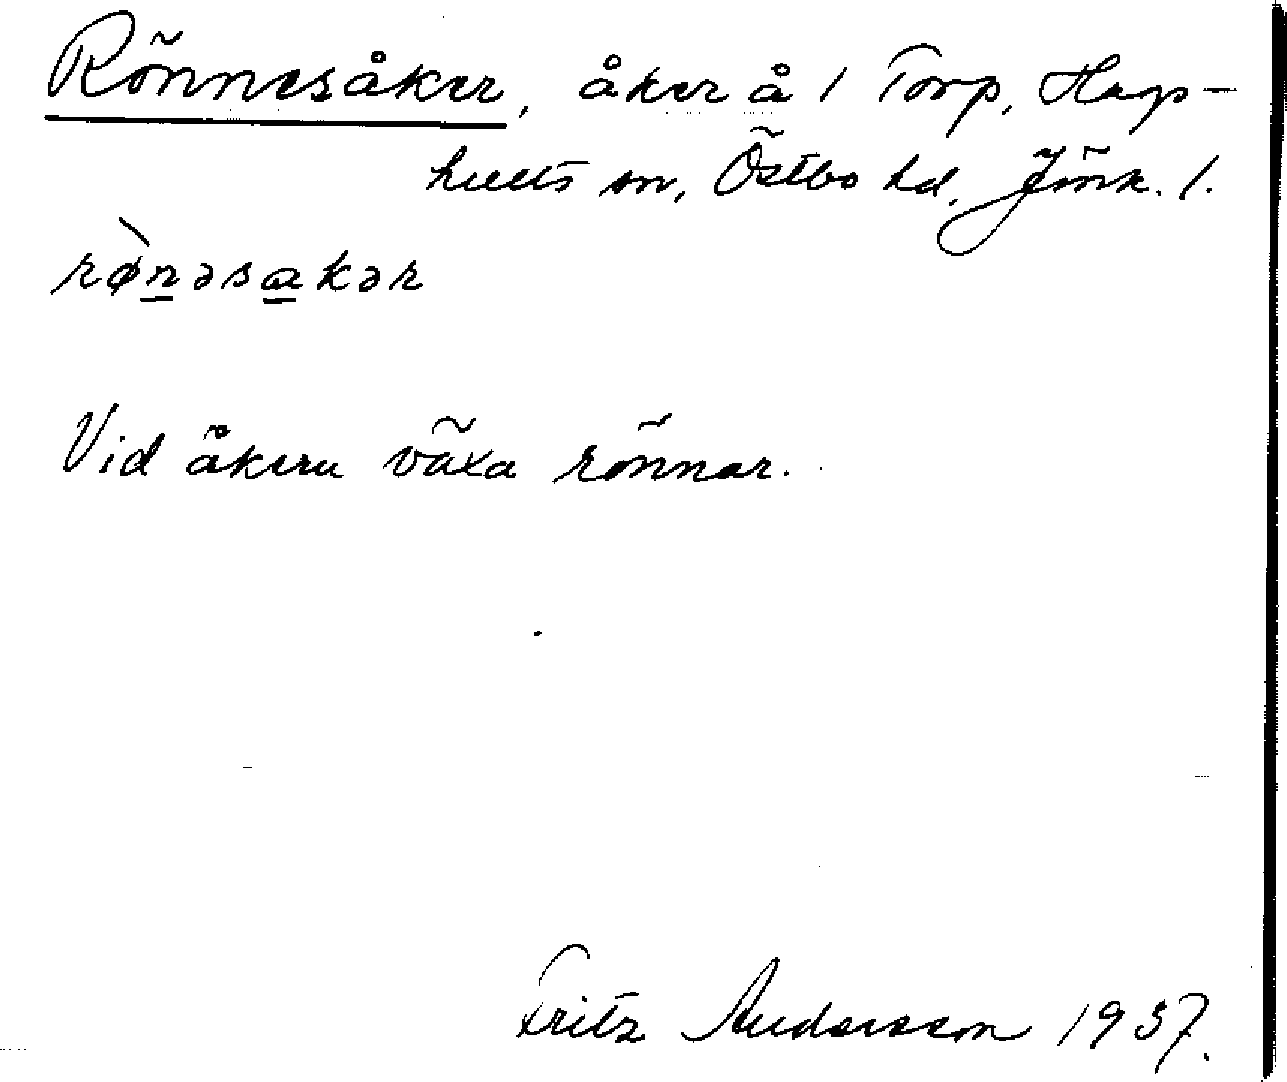 Rönnesåker, åker å 1 Torp, Hag-
hults sn, Östbo hd, Jönk. l.
rø̀nəsakər
Vid åkern växa rönnar.
Fritz Andersson 1937.